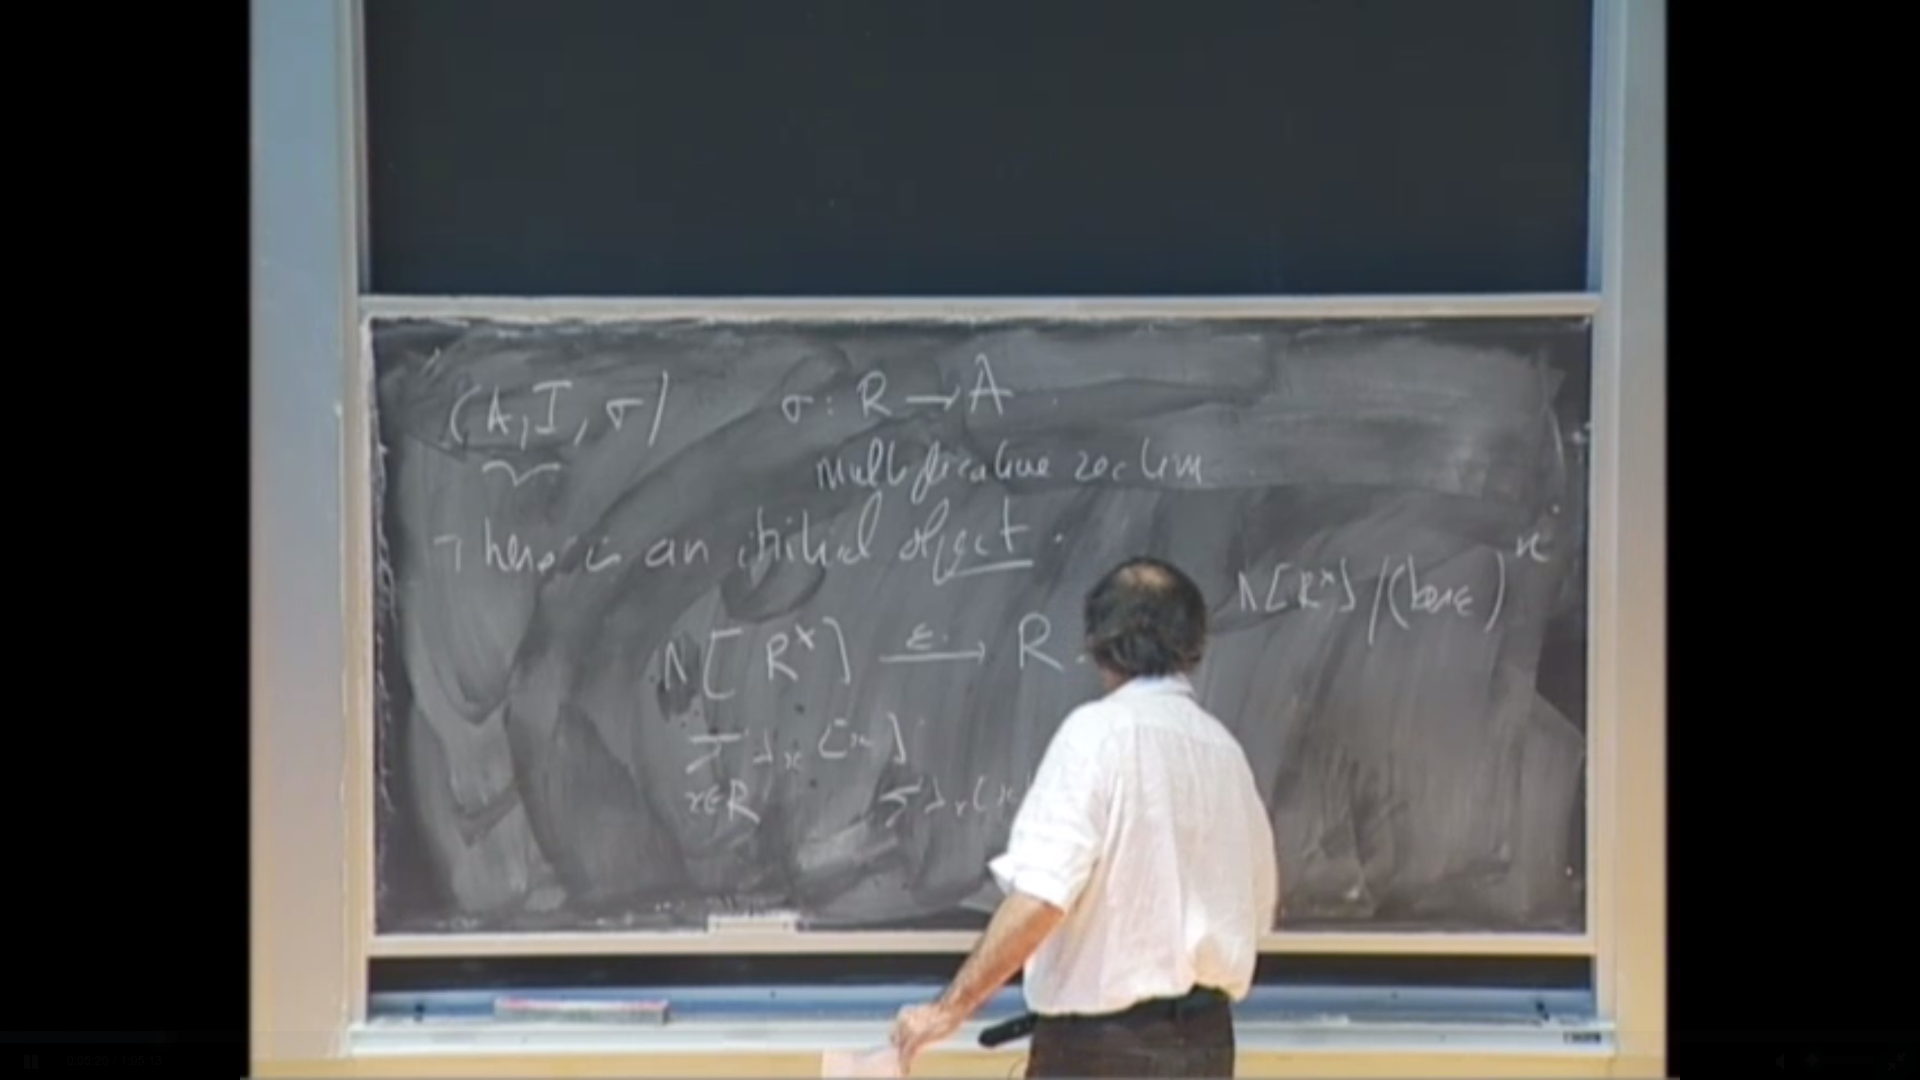 (A, I, σ) σ : R → A
Multiplicative section
There is an initial object.
Λ[R^x] / (ker ε)^n
Λ[ R^x ] —ε→ R.
∑ λ_x [x]
x∈R ∑ λ_x (x